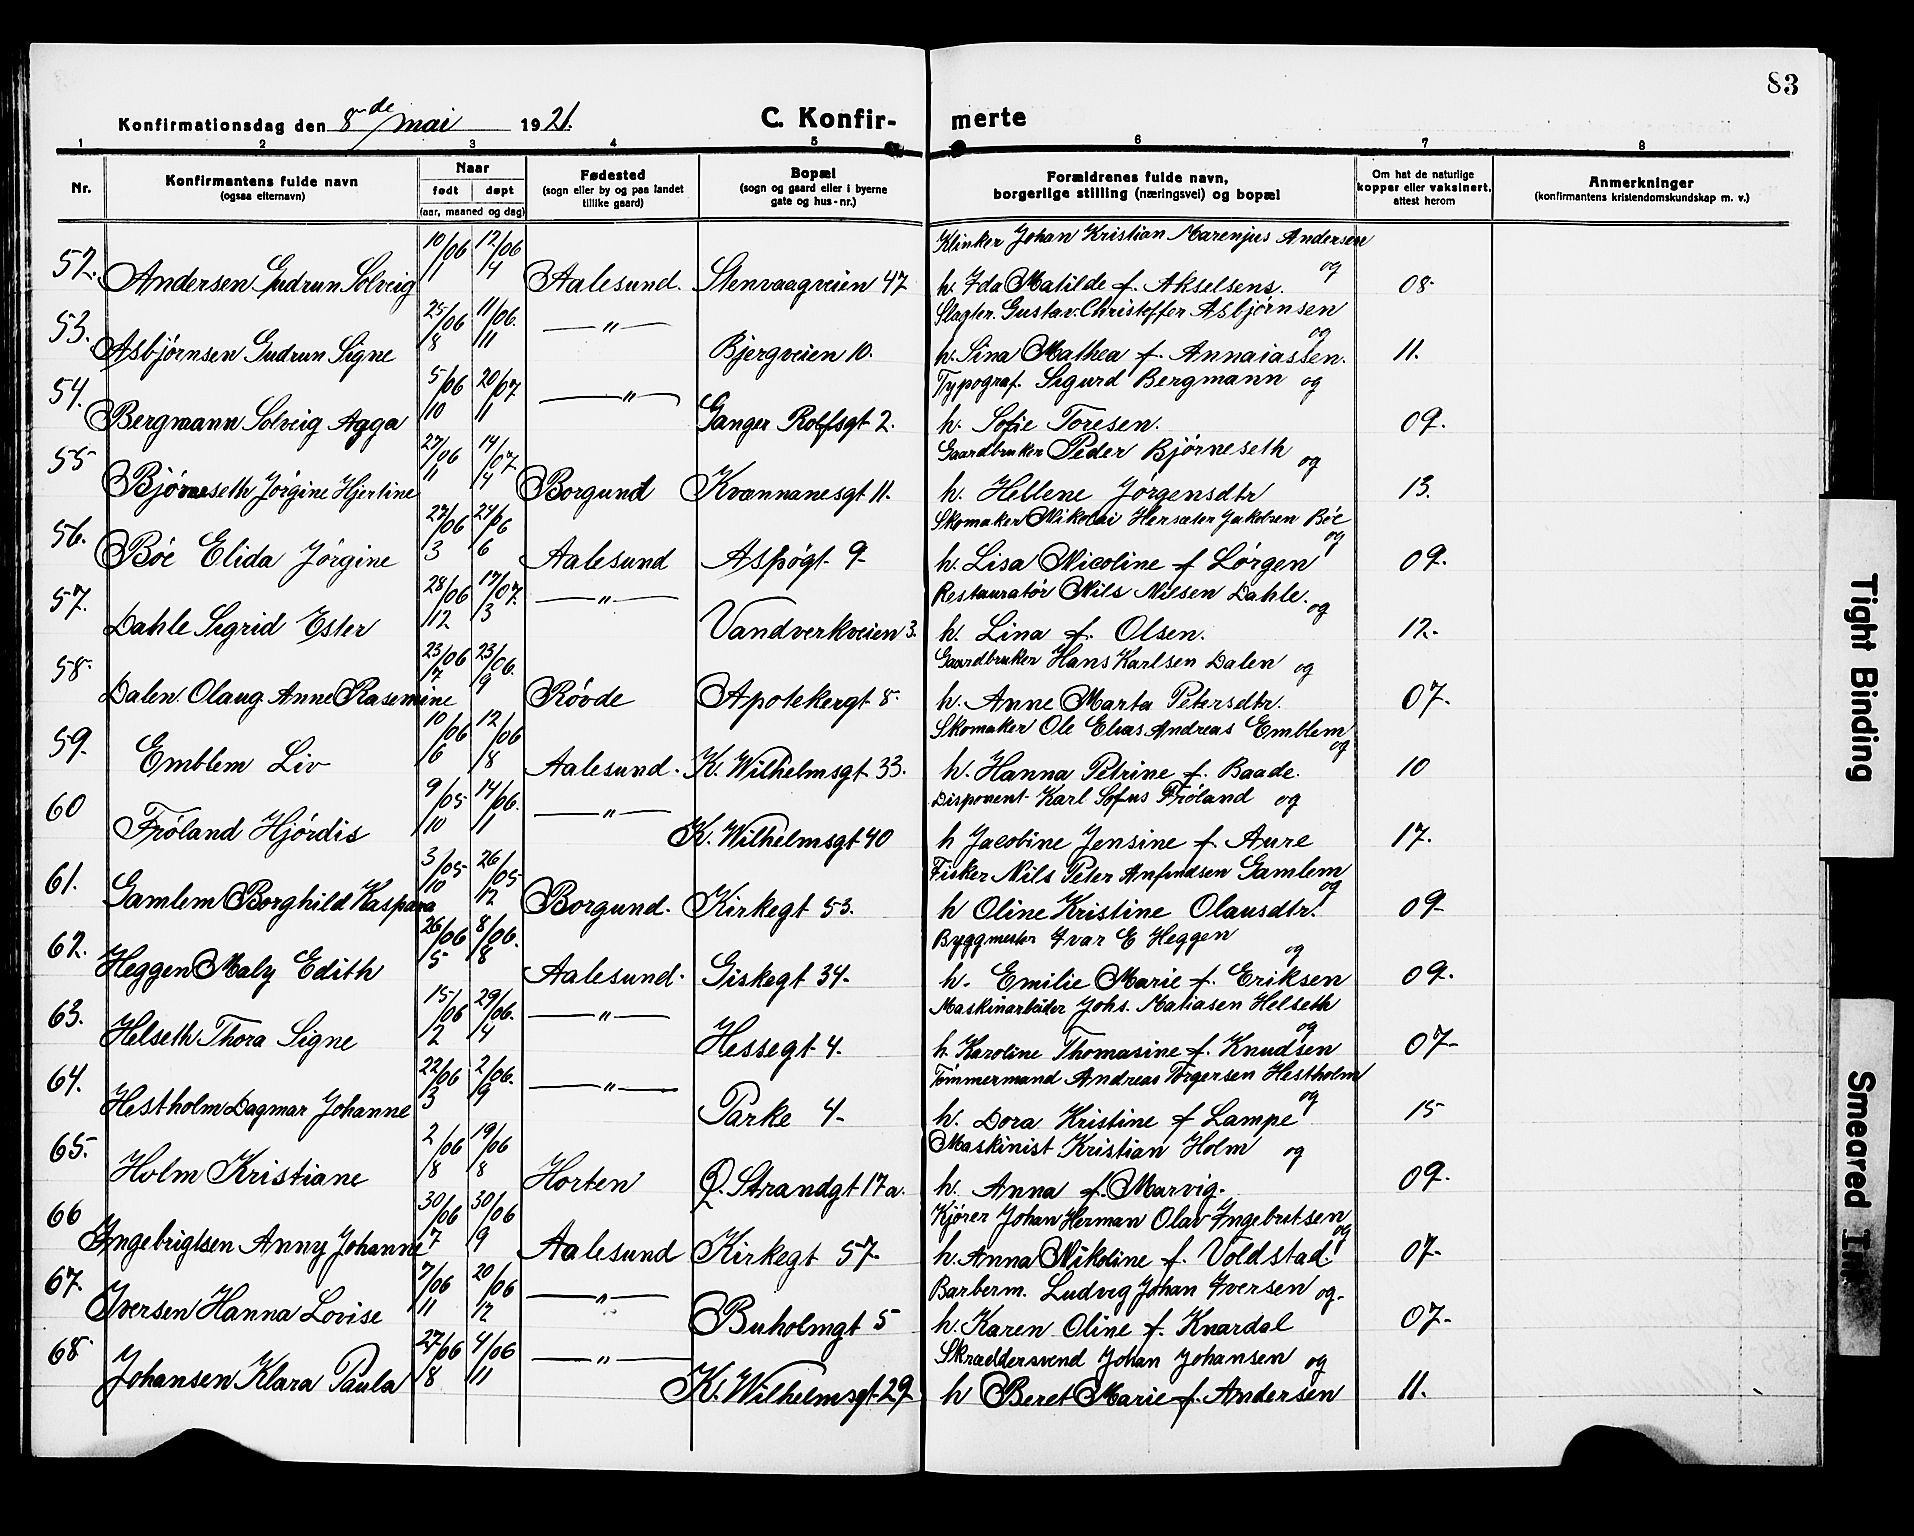 83
Konfirmationsdag den 8de mai 1921.
C. Konfirmerte
1 2 3 4 5 6 7 8
Nr. Konfirmantens fulde navn (ogsaa elternavn) Naar født døpt (aar, maaned og dag) Fødested (sogn eller by og paa landet tillike gaard) Bopæl (sogn og gaard eller i byerne gate og hus-nr.) Forældrenes fulde navn, borgerlige stilling (næringsvei) og bopæl Om hat de naturlige kopper eller vaksinert, attest herom Anmerkninger (konfirmantens kristendomskundskap m. v.)
52. Andersen Gudrun Solveig 10/1 06 12/4 06 Aalesund. Stenvaagveien 47 Klinker Johan Kristian Marenjus Andersen og
h. Ida Matilde f. Akselsens. 08-
53. Asbjørnsen Gudrun Signe 25/8 06 11/11 06. —"— Bjergveien 10. Slagter. Gustav. Christoffer Asbjørnsen og
h. Sina Mathea f. Annaiassen. 11.
54. Bergmann Solveig Agga 5/10 06 20/11 07 —"— Ganger Rolfsgt 2. Typograf. Sigurd Bergmann og
h. Sofie Toresen. 09.
55 Bjørneseth Jørgine Hjertine 27/11 06 14/4 07. Borgund Kvannanesgt 11. Gaardbruker Peder Bjørneseth og
h. Hellene Jørgensdtr 13.
56. Böe Elida Jörgine 27/3 06 24/6 06 Aalesund Aspøgt 9- Skomaker Nikolai Hersæter Jakobsen Böe og
h. Lisa Nicoline f Lörgen 09.
57. Dahle Sigrid Ester 28/12 06 17/3 07. —"— Vandverkveien 3. Restauratør Nils Nilsen Dahle. og
h. Lina f. Olsen. 12.
58. Dalen. Olaug Anne Rasemine 23/7 06 23/9 06. Rövde Apotekergt 8. Gaardbruker Hans Karlsen Dalen og
h. Anne Marta Petersdtr. 07.
59. Emblem Liv 10/6 06 12/8 06 Aalesund. K. Wilhelmsgt 33. Skomaker Ole Elias Andreas Emblem og
h. Hanna Petrine f. Baade. 10
60 Fröland Hjördis 9/10 05 14/11 06. —"— K. Wilhelmsgt 40 Disponent Karl Sofus Fröland og
h Jacobine Jensine f. Aure 17.
61. Gamlem Borghild Kaspara 3/10 05 26/12 05 Borgund. Kirkegt 53. Fisker Nils Peter Anfindsen Gamlem og
h Oline Kristine Olausdtr. 09-
62. Heggen Maly Edith 26/5 06 8/8 06. Aalesund. Giskegt 34- Byggmester Ivar E Heggen og
h. Emilie Marie f. Eriksen 09.
63. Helseth Thora Signe 15/2 06 29/4 06. —"— Hessegt 4. Maskinarbeider Johs. Matiasen Helseth og
h. Karoline Thomasine f. Knudsen 07-
64. Hestholm Dagmar Johanne 22/3 06 2/9 06. —"— Parke 4- Tömmermand Andreas Torgersen Hestholm og
h. Dora Kristine f Lampe 15
65. Holm Kristiane 2/8 06 19/8 06 Horten Q. Strandgt 17a. Maskinist Kristian Holm og
h. Anna f. Marvig. 09.
66 Ingebrigtsen Anny Johanne 30/7 06 30/9 06 Aalesund Kirkegt 57- Kjører Johan Herman Olav Ingebretsen og
h. Anna Nikoline f. Voldstad. 07-
67. Iversen Hanna Lovise 7/11 06 20/12 06 —"— Buholmgt 5 Barberm. Ludvig Johan Iversen og-
h. Karen Oline f. Knardal 07-
68 Johansen Klara Paula 27/8 06 4/11 06 —"— K. Wilhelmsgt 29 Skræddersvend Johan Johansen og
h Beret Marie f. Andersen 11.
Tight Binding
Smeared Ink